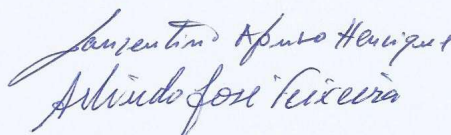 Laurentino Afonso Henrique
Arlindo José Teixeira